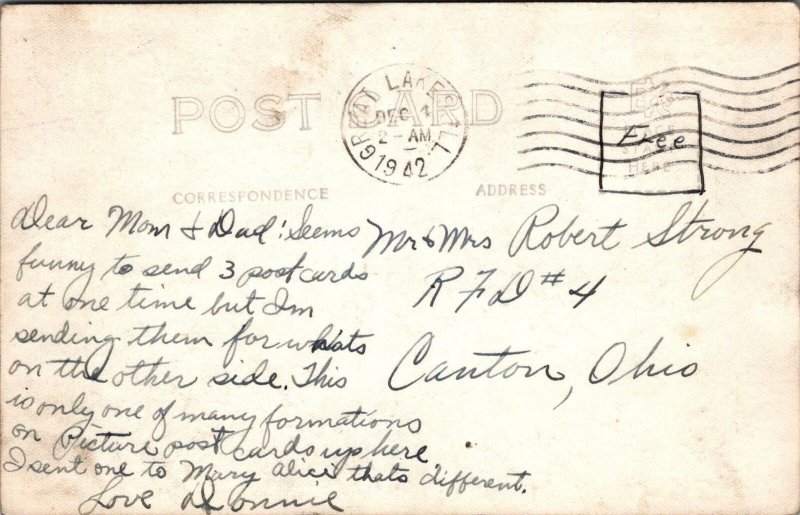 POST CARD
GREAT LAKES, ILL.
DEC 1
2 - AM
1942
Free
PLACE
STAMP
HERE
CORRESPONDENCE
ADDRESS
Dear Mom & Dad: Seems
funny to send 3 postcards
at one time but Im
sending them for whats
on the other side. This
is only one of many formations
on Picture post cards up here.
I sent one to Mary Alice thats different.
Love Donnie
Mr & Mrs Robert Strong
R F D # 4
Canton, Ohio